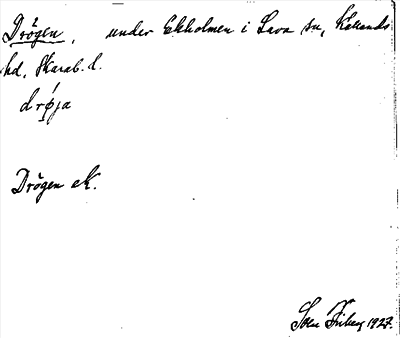 Drögen, under Ekholmen i Sava sn, Kållands
hd, Skarab. l.
drø̀ja
Drögen ek.
Sven Friberg 1927.